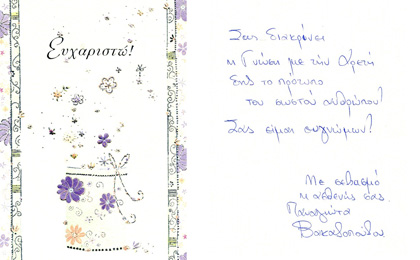 Ευχαριστώ!
Σας διακρίνει
η Γνώση με την Αρετή
Εσείς το πρότυπο
του σωστού ανθρώπου!
Σας είμαι ευγνώμων!
Με σεβασμό
η ασθενής σας
Παναγιώτα